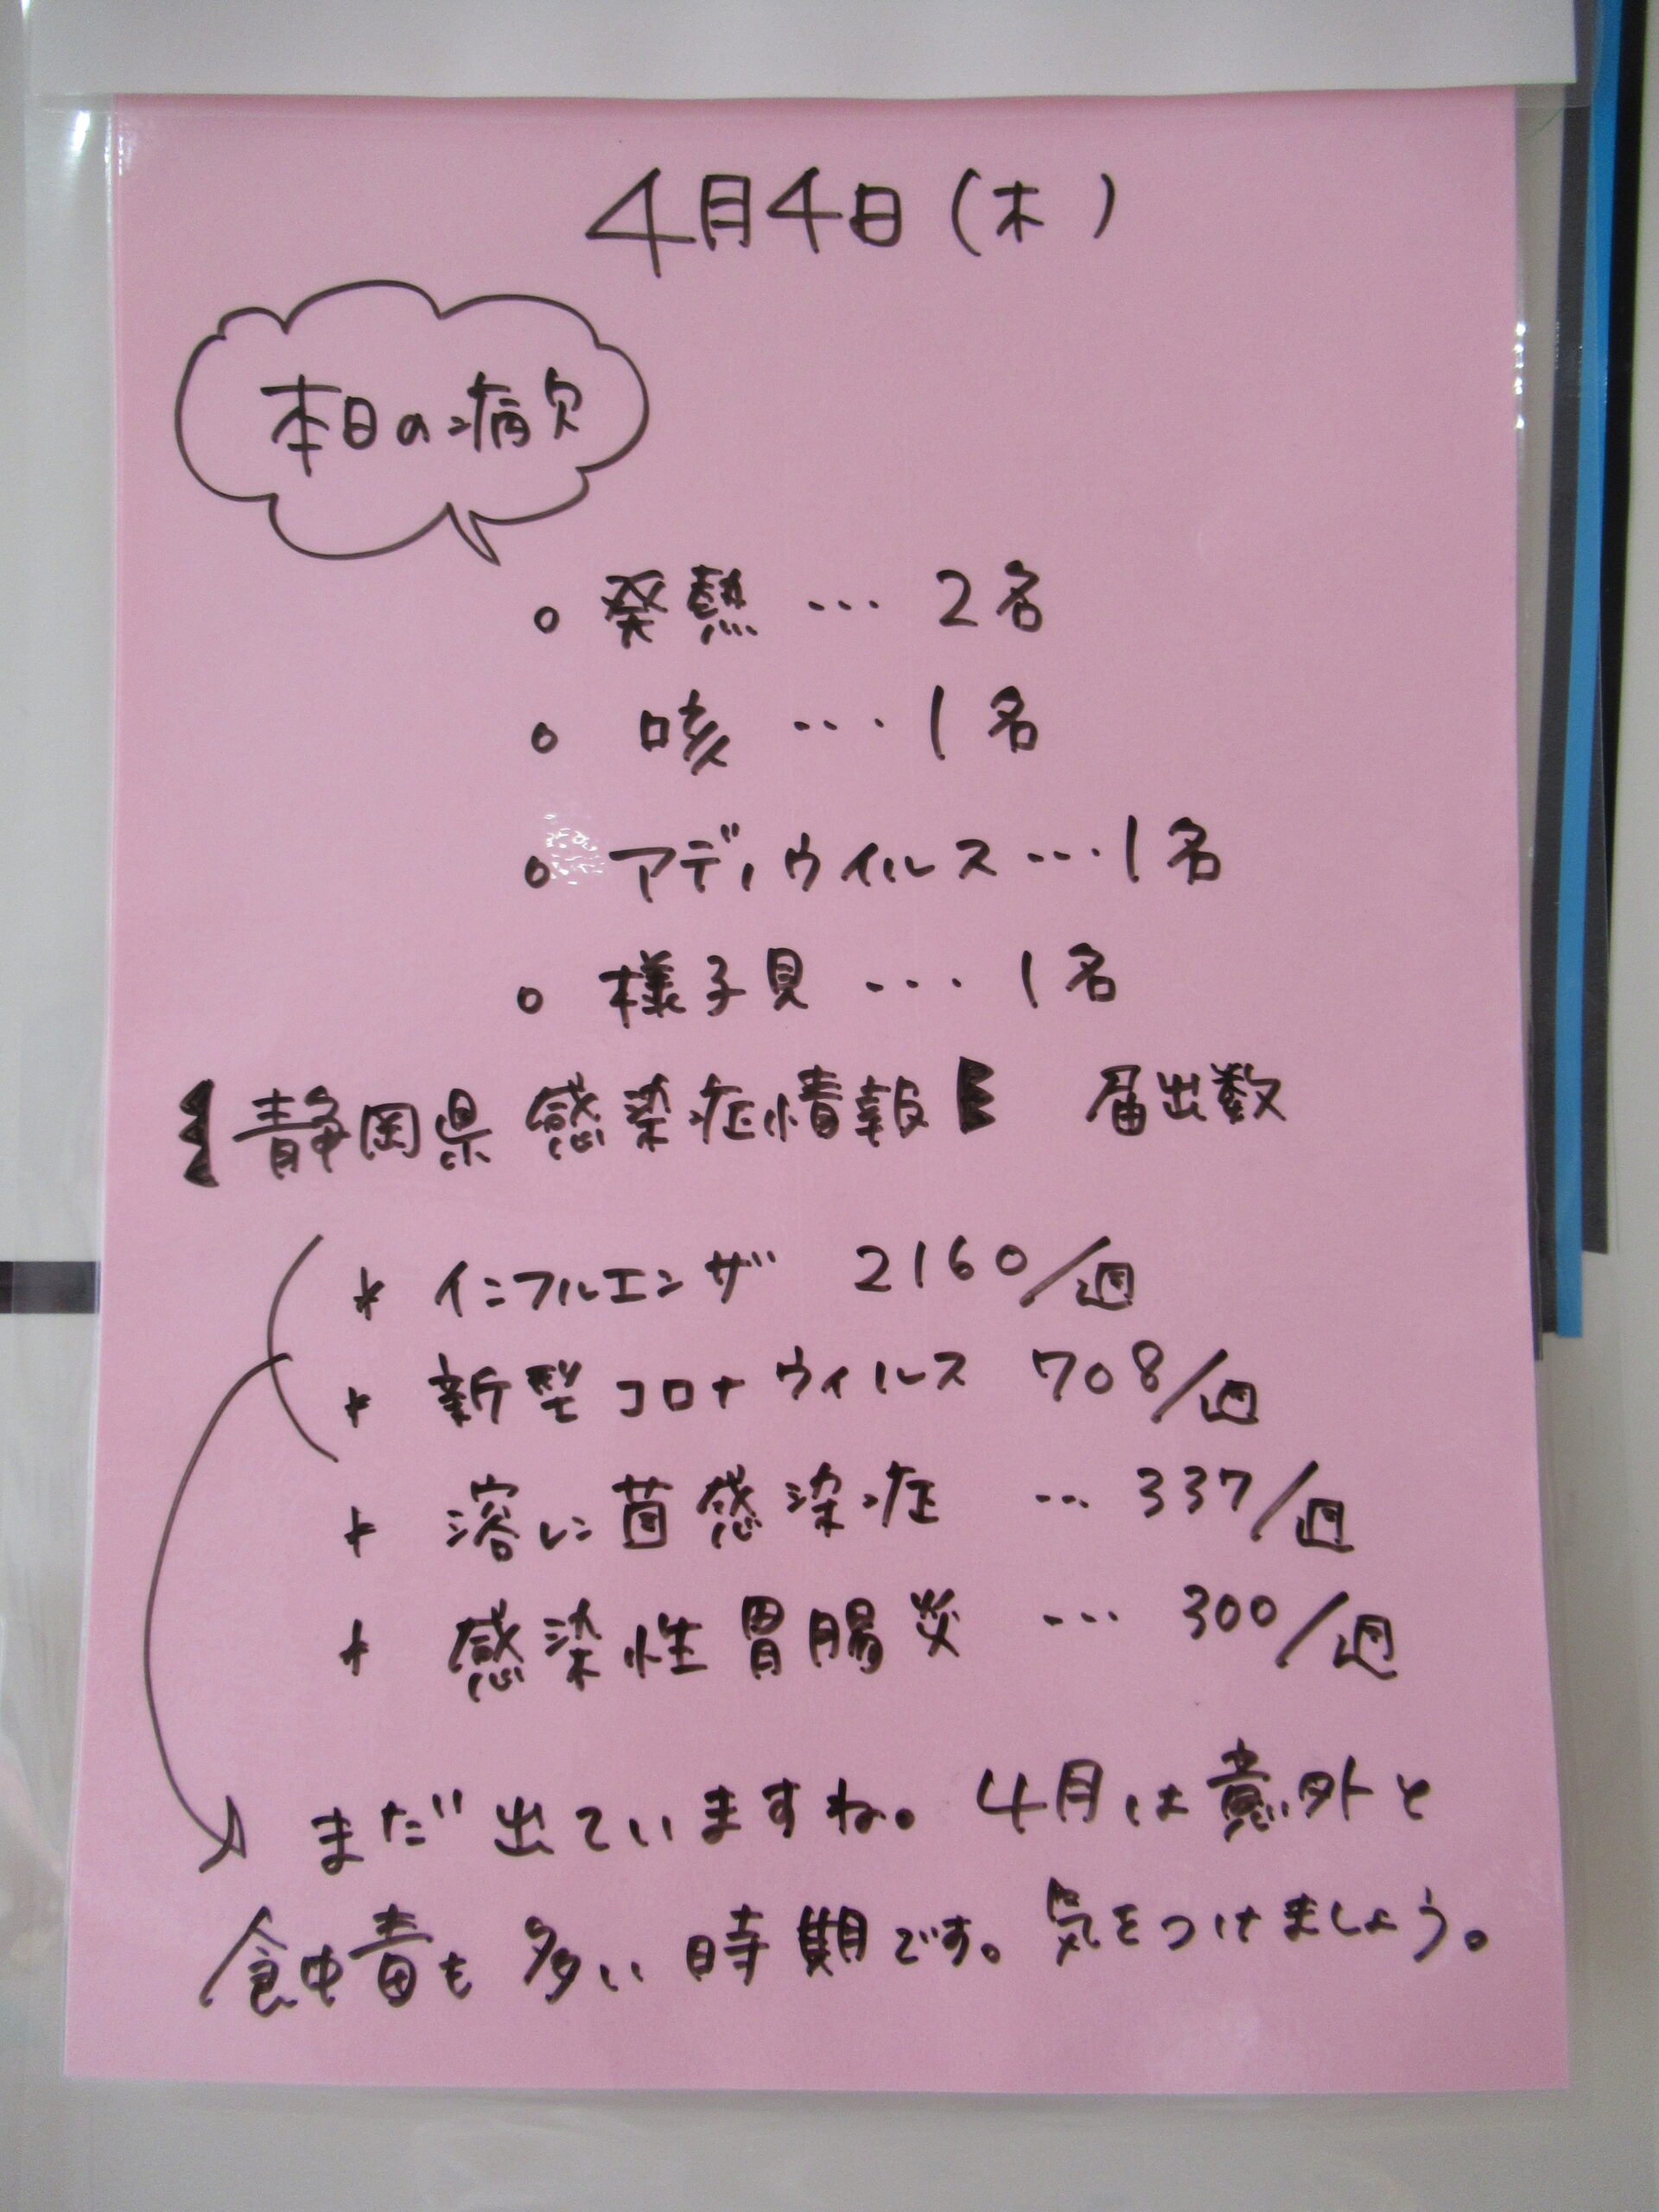 4月4日（木）
本日の病欠
○ 発熱 … 2名
○ 咳 … 1名
○ アデノウイルス … 1名
○ 様子見 … 1名
【静岡県 感染症情報】 届出数
* インフルエンザ 2160/週
* 新型コロナウィルス 708/週
* 溶レン菌感染症 … 337/週
* 感染性胃腸炎 … 300/週
まだ出ていますね。4月は意外と
食中毒も多い時期です。気をつけましょう。